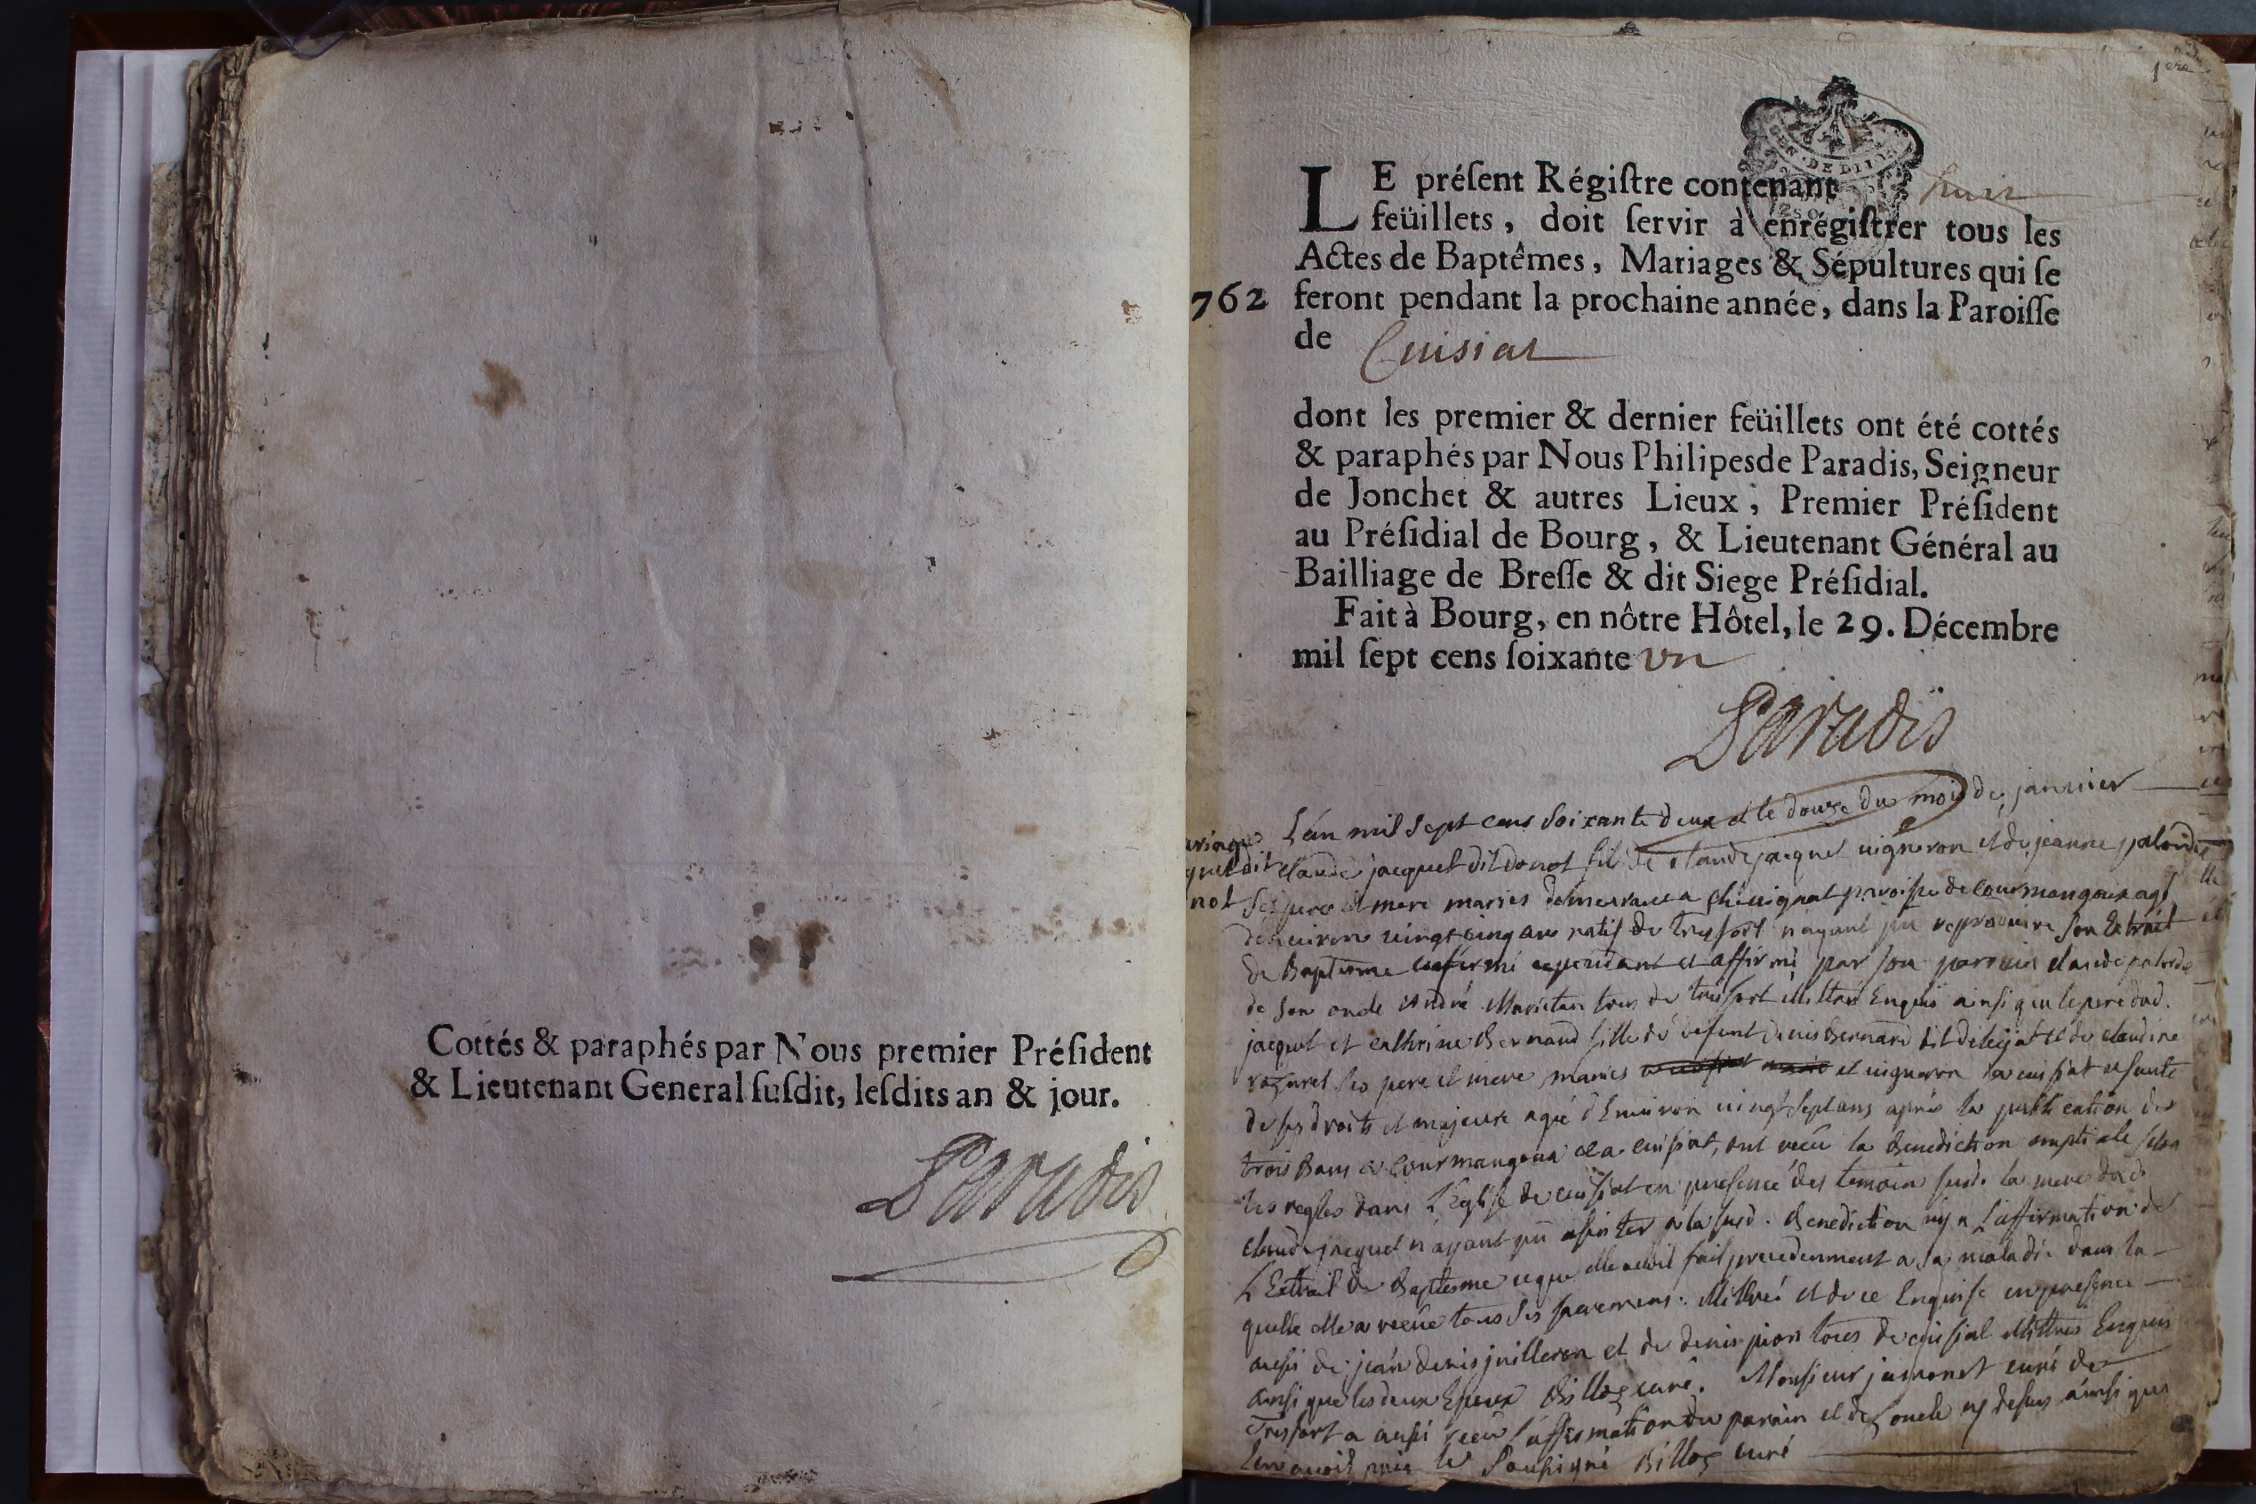 Cottés & paraphés par Nous premier Préſident
& Lieutenant General ſuſdit, leſdits an & jour.
Paradis
1ere
GEN. DE DIJON
LE préſent Régiſtre contenant huit
feüillets, doit ſervir à enrégiſtrer tous les
Actes de Baptêmes, Mariages & Sépultures qui ſe
762 feront pendant la prochaine année, dans la Paroiſſe
de Cuisiat
dont les premier & dernier feüillets ont été cottés
& paraphés par Nous Philipes de Paradis, Seigneur
de Jonchet & autres Lieux, Premier Préſident
au Préſidial de Bourg, & Lieutenant Général au
Bailliage de Breſſe & dit Siege Préſidial.
Fait à Bourg, en nôtre Hôtel, le 29. Décembre
mil ſept cens ſoixante un
Paradis
L'an mil sept cens soixante deux et le douze du mois de janvier
claude jacquet dit donot fils de claude jacquet vigneron et de jeanne
ses pere et mere mariés demeurant a chevignat paroisse de courmangoux agé
denviron vingt cinq ans natif de tresfort n'ayant pu reproduire son extrait
de Baptesme et affirmé par son parrain claude
de son oncle André tous de tresfort illittrés Enquis ainsi que le pere dud.
jacquet et catherine Bernard fille de defunt denis Bernard dit et de claudine
ses pere et mere mariés et vigneron a cuisiat
de ses droits et majeure agée d'Environ vingt sept ans après la publication des
trois Bans a courmangoux et a cuisiat, ont reçu la Benediction nuptiale selon
les regles dans l'Eglise de cuisiat en presence des temoins susd. la mere dud.
claude jacquet n'ayant pu assister a la susd. Benediction ny a l'affirmation de
l'Extrait de Baptesme ce que elle avoit fait precedemment a sa maladie dans la
quelle elle a reçue tous ses sacremens. illittrée et de ce Enquise en presence
aussi de jean denis juilleron et de denis pion tous de cuisiat illittrés Enquis
ainsi que les deux Epoux Billoz curé. Monsieur curé de
Tresfort a aussi reçu l'affirmation du parrain et de l'oncle cy dessus ainsi que
l'en avoit prié le soussigné Billoz curé